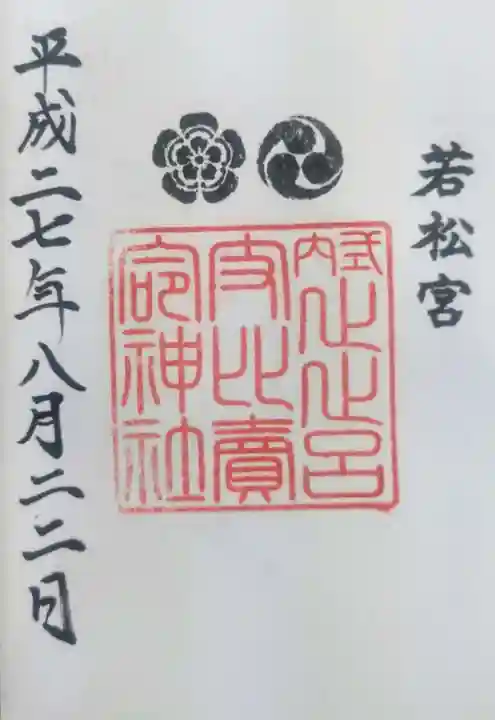 若松宮
式内止止呂
支比賣
命神社
平成二七年八月二二日